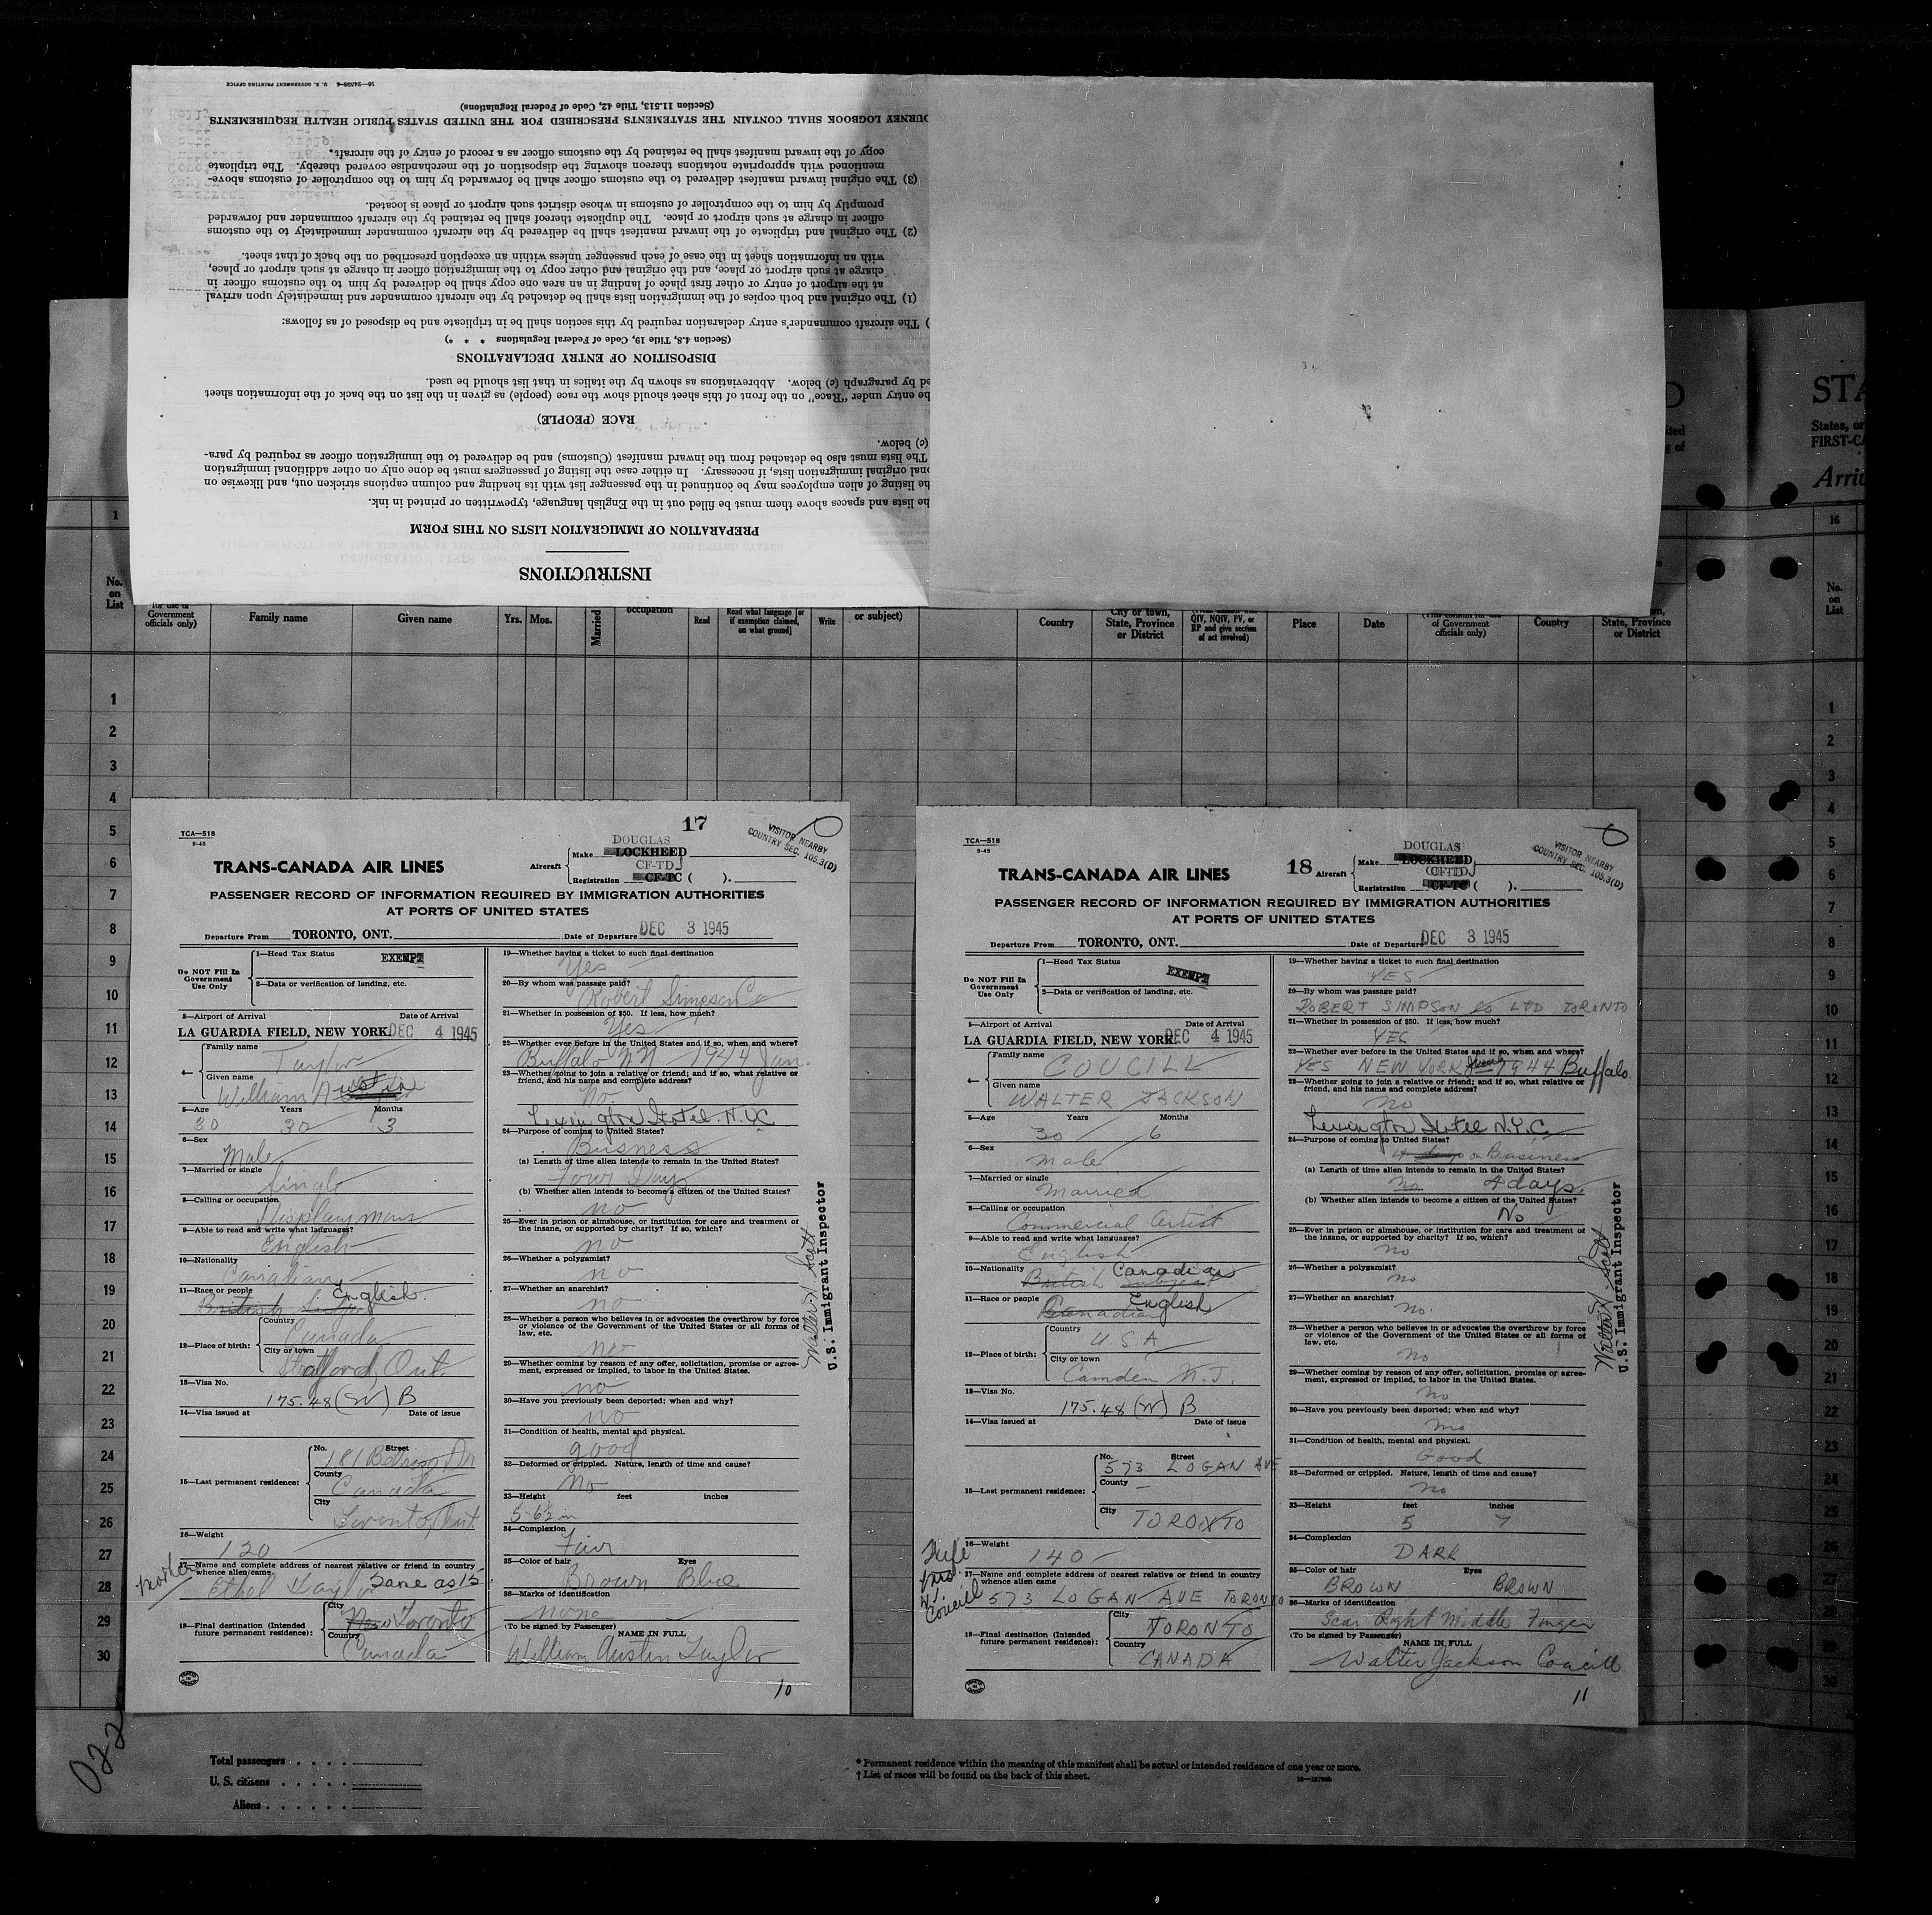 16—24598-4 U. S. GOVERNMENT PRINTING OFFICE
(Section 11.513, Title 42, Code of Federal Regulations)
URNEY LOGBOOK SHALL CONTAIN THE STATEMENTS PRESCRIBED FOR THE UNITED STATES PUBLIC HEALTH REQUIREMENTS
copy of the inward manifest shall be retained by the customs officer as a record of entry of the aircraft.
mentioned with appropriate notations thereon showing the disposition of the merchandise covered thereby. The triplicate
(3) The original inward manifest delivered to the customs officer shall be forwarded by him to the comptroller of customs above-
promptly by him to the comptroller of customs in whose district such airport or place is located.
officer in charge at such airport or place. The duplicate thereof shall be retained by the aircraft commander and forwarded
(2) The original and triplicate of the inward manifest shall be delivered by the aircraft commander immediately to the customs
with an information sheet in the case of each passenger unless within an exception prescribed on the back of that sheet.
charge at such airport or place, and the original and other copy to the immigration officer in charge at such airport or place,
at the airport of entry or other first place of landing in an area one copy shall be delivered by him to the customs officer in
(1) The original and both copies of the immigration lists shall be detached by the aircraft commander and immediately upon arrival
) The aircraft commander's entry declaration required by this section shall be in triplicate and be disposed of as follows:
(Section 4.8, Title 19, Code of Federal Regulations * * *)
DISPOSITION OF ENTRY DECLARATIONS
ed by paragraph (c) below. Abbreviations as shown by the italics in that list should be used.
he entry under "Race" on the front of this sheet should show the race (people) as given in the list on the back of the information sheet
RACE (PEOPLE)
(c) below.
The lists must also be detached from the inward manifest (Customs) and be delivered to the immigration officer as required by para-
onal original immigration lists, if necessary. In either case the listing of passengers must be done only on other additional immigration
he listing of alien employees may be continued in the passenger list with its heading and column captions stricken out, and likewise on
he lists and spaces above them must be filled out in the English language, typewritten or printed in ink.
PREPARATION OF IMMIGRATION LISTS ON THIS FORM
INSTRUCTIONS
STA
States, or
FIRST-CA
Arriv
1
16
No.
on
List
for use of
Government
officials only)
Family name
Given name
Yrs.
Mos.
Married
occupation
Read
Read what language [or
if exemption claimed,
on what ground]
Write
or subject)
Country
City or town,
State, Province
or District
QIV, NQIV, PV, or
RP and give section
of act involved)
Place
Date
of Government
officials only)
Country
State, Province
or District
No.
on
List
1
2
3
4
5
6
7
8
9
10
11
12
13
14
15
16
17
18
19
20
21
22
23
24
25
26
27
28
29
30
TCA—518
9-45
17
VISITOR NEARBY
COUNTRY SEC. 105.3(D)
TRANS-CANADA AIR LINES
Aircraft
DOUGLAS
Make LOCKHEED
CF-TD
Registration CF-TC ( ).
PASSENGER RECORD OF INFORMATION REQUIRED BY IMMIGRATION AUTHORITIES
AT PORTS OF UNITED STATES
Departure From TORONTO, ONT. Date of Departure DEC 3 1945
Do NOT Fill In
Government
Use Only
1—Head Tax Status EXEMPT
2—Data or verification of landing, etc.
3—Airport of Arrival Date of Arrival
LA GUARDIA FIELD, NEW YORK. DEC 4 1945
4—
Family name Taylor
Given name William Austin
5—Age Years Months
30 30 3
6—Sex Male
7—Married or single
Single
8—Calling or occupation
Displayman
9—Able to read and write what languages?
English
10—Nationality
Canadian
11—Race or people English
British
12—Place of birth:
Country
Canada
City or town
Stratford, Ont.
13—Visa No.
175.48 (W) B
14—Visa issued at Date of issue
15—Last permanent residence:
No. Street
181
County
Canada
City
Toronto, Ont
16—Weight
120
mother
17—Name and complete address of nearest relative or friend in country
whence alien came
Ethel Taylor Same as 15
18—Final destination (Intended
future permanent residence):
City
New Toronto
Country
Canada
19—Whether having a ticket to such final destination
Yes
20—By whom was passage paid?
Robert Simpson Co
21—Whether in possession of $50. If less, how much?
Yes
22—Whether ever before in the United States and if so, when and where?
Buffalo NY 1944 Jan.
23—Whether going to join a relative or friend; and if so, what relative or
friend, and his name and complete address?
No.
Lexington Hotel. N.Y.C
24—Purpose of coming to United States?
Business
(a) Length of time alien intends to remain in the United States?
Four Days
(b) Whether alien intends to become a citizen of the United States?
no
25—Ever in prison or almshouse, or institution for care and treatment of
the insane, or supported by charity? If so, which?
no
26—Whether a polygamist?
no
27—Whether an anarchist?
no
28—Whether a person who believes in or advocates the overthrow by force
or violence of the Government of the United States or all forms of
law, etc.
no
29—Whether coming by reason of any offer, solicitation, promise or agree-
ment, expressed or implied, to labor in the United States.
no
30—Have you previously been deported; when and why?
no
31—Condition of health, mental and physical.
good
32—Deformed or crippled. Nature, length of time and cause?
No
33—Height feet inches
5-6½ in
34—Complexion
Fair
35—Color of hair Eyes
Brown Blue
36—Marks of identification
none
(To be signed by Passenger) NAME IN FULL
William Austin Taylor
10
Walter Scott
U.S. Immigrant Inspector
TCA—518
9-45
18
VISITOR NEARBY
COUNTRY SEC. 105.3(D)
TRANS-CANADA AIR LINES
Aircraft
DOUGLAS
Make LOCKHEED
CFTD
Registration CF-TC ( ).
PASSENGER RECORD OF INFORMATION REQUIRED BY IMMIGRATION AUTHORITIES
AT PORTS OF UNITED STATES
Departure From TORONTO, ONT. Date of Departure DEC 3 1945
Do NOT Fill In
Government
Use Only
1—Head Tax Status
EXEMPT
2—Data or verification of landing, etc.
3—Airport of Arrival Date of Arrival
LA GUARDIA FIELD, NEW YORK. DEC 4 1945
4—
Family name
COUCILL
Given name
WALTER JACKSON
5—Age Years Months
30 6
6—Sex
Male
7—Married or single
Married
8—Calling or occupation
Commercial Artist
9—Able to read and write what languages?
English
10—Nationality Canadian
British Subject
11—Race or people English
Canadian
12—Place of birth:
Country
U.S.A
City or town
Camden N.J.
13—Visa No.
175.48 (W) B
14—Visa issued at Date of issue
15—Last permanent residence:
No. Street
573 LOGAN AVE
County
—
City
TORONTO
16—Weight
140
Wife
Mrs.
W.J.
Coucill
17—Name and complete address of nearest relative or friend in country
whence alien came
573 LOGAN AVE TORONTO
18—Final destination (Intended
future permanent residence):
City
TORONTO
Country
CANADA
19—Whether having a ticket to such final destination
YES
20—By whom was passage paid?
ROBERT SIMPSON CO LTD TORONTO
21—Whether in possession of $50. If less, how much?
YES
22—Whether ever before in the United States and if so, when and where?
YES NEW YORK 1944 Buffalo.
23—Whether going to join a relative or friend; and if so, what relative or
friend, and his name and complete address?
no
Lexington Hotel N.Y.C.
24—Purpose of coming to United States?
4 days on Business
(a) Length of time alien intends to remain in the United States?
no 4 days.
(b) Whether alien intends to become a citizen of the United States?
No
25—Ever in prison or almshouse, or institution for care and treatment of
the insane, or supported by charity? If so, which?
no
26—Whether a polygamist?
no
27—Whether an anarchist?
no.
28—Whether a person who believes in or advocates the overthrow by force
or violence of the Government of the United States or all forms of
law, etc.
no
29—Whether coming by reason of any offer, solicitation, promise or agree-
ment, expressed or implied, to labor in the United States.
no
30—Have you previously been deported; when and why?
no
31—Condition of health, mental and physical.
Good
32—Deformed or crippled. Nature, length of time and cause?
no
33—Height feet inches
5 7
34—Complexion
DARK
35—Color of hair Eyes
BROWN BROWN
36—Marks of identification
Scar Right Middle Finger
(To be signed by Passenger) NAME IN FULL
Walter Jackson Coucill
11
Walter Scott
U.S. Immigrant Inspector
022
Total passengers
U. S. citizens
Aliens
* Permanent residence within the meaning of this manifest shall be actual or intended residence of one year or more.
† List of races will be found on the back of this sheet.